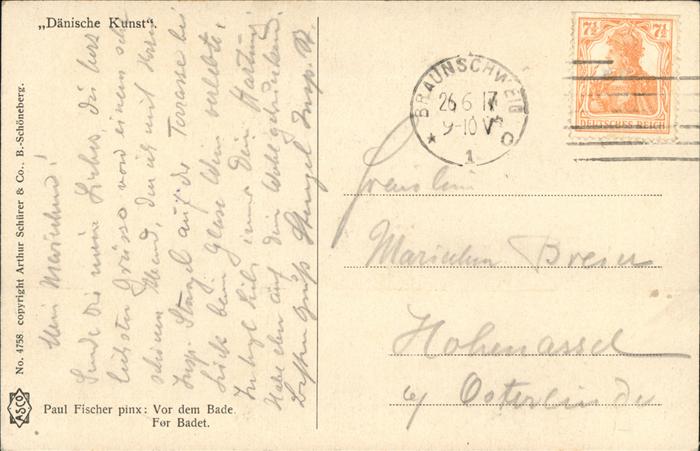 „Dänische Kunst“.
No. 4758 copyright Arthur Schürer & Co., B.-Schöneberg.
ASCO
Paul Fischer pinx: Vor dem Bade.
Før Badet.
Mein Mariechen!
Sende Dir meine Liebe, die herz
lichsten Grüsse von einem sehr
schönen Abend, den ich mit Herrn
Insp. Stangel auf der Terrasse bei
Lück beim Glase Wein verlebte.
In Liebe
Habe eben auf dein Wohl getrunken.
Besten Gruß Stangel Insp.
BRAUNSCHWEIG
26.6.17
9-10 V
1
7½ 7½
DEUTSCHES REICH
Fräulein
Mariechen Breier
Hohenassel
b/ Osterlinde